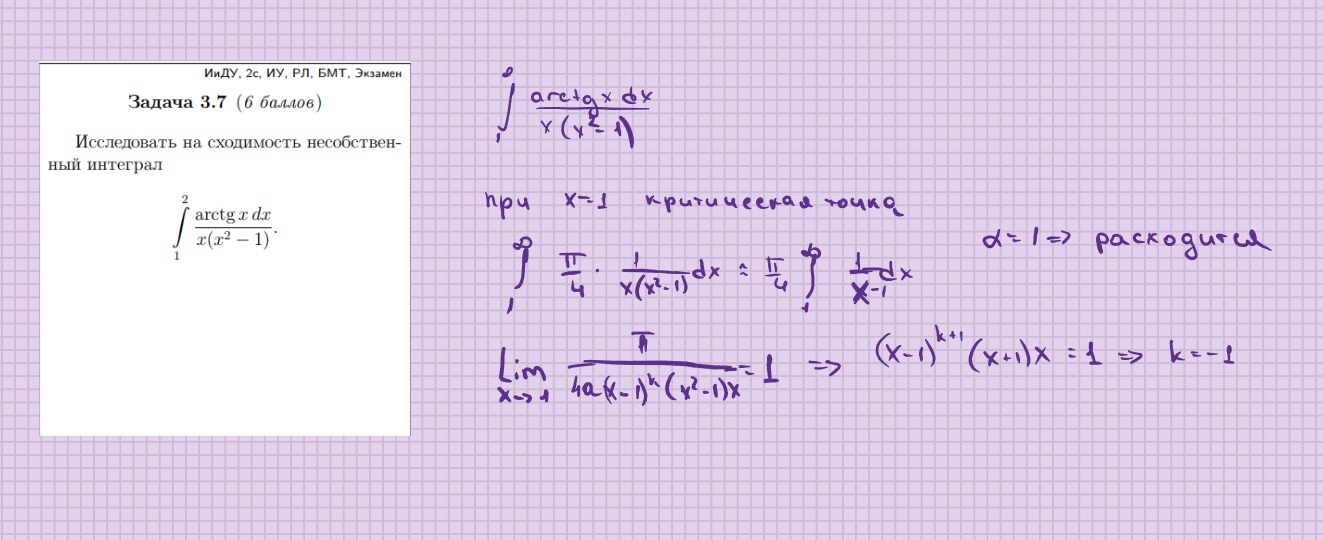 ИиДУ, 2с, ИУ, РЛ, БМТ, Экзамен
Задача 3.7 (6 баллов)
Исследовать на сходимость несобствен-
ный интеграл
∫₁² arctg x dx / x(x² − 1).
∫₁^∞ arctg x dx / x(x² − 1)
при x=1 критическая точка
∫₁^∞ π/4 · 1/x(x²-1) dx ≈ π/4 ∫₁^∞ 1/x-1 dx
α=1 => расходится
Lim x->1 π / 4a(x-1)^k (x²-1)x = 1 => (x-1)^k+1 (x+1)x = 1 => k=-1